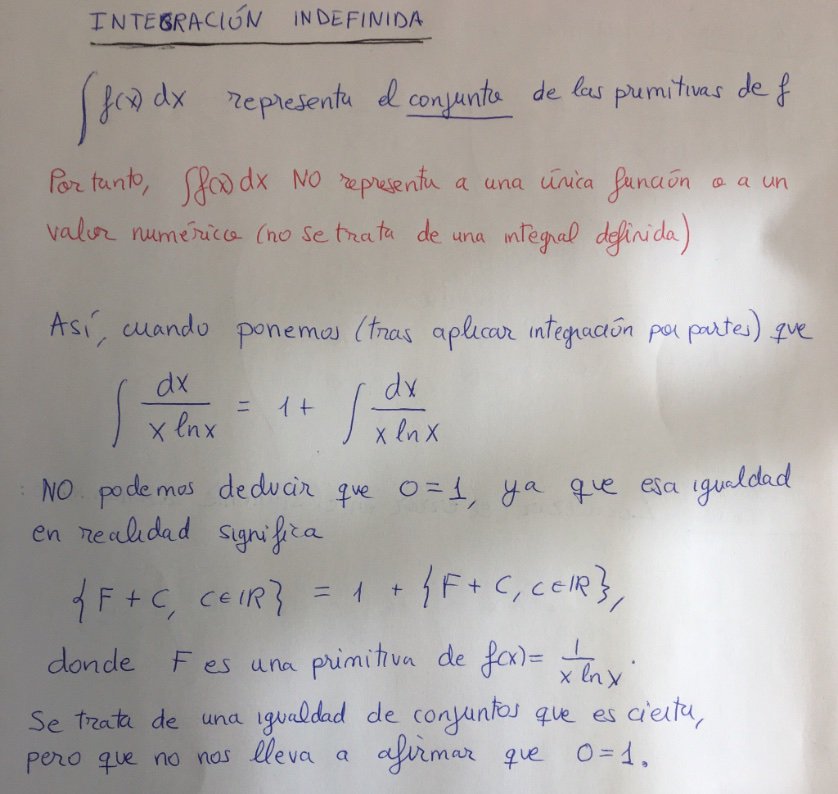 INTEGRACIÓN INDEFINIDA
∫ f(x) dx representa el conjunto de las primitivas de f
Por tanto, ∫f(x) dx NO representa a una única función o a un
valor numérico (no se trata de una integral definida)
Así, cuando ponemos (tras aplicar integración por partes) que
∫ dx / (x ln x) = 1 + ∫ dx / (x ln x)
NO podemos deducir que 0=1, ya que esa igualdad
en realidad significa
{F + C, C∈ℝ} = 1 + {F + C, C∈ℝ},
donde F es una primitiva de f(x) = 1 / (x ln x).
Se trata de una igualdad de conjuntos que es cierta,
pero que no nos lleva a afirmar que 0=1.